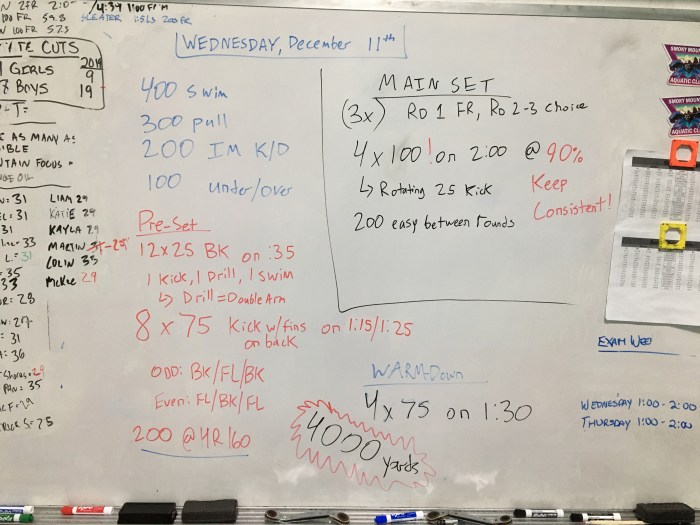 100 FR 59.8
4:39 1:00 FrM
100 FR 57.5
200 FR
CUTS
GIRLS 9
BOYS 19
2019
AS MANY AS
FOCUS
: 31
: 31
31
33
: 31
: 35
33
: 28
: 27
: 31
: 36
: 29
: 35
: 29
S = 25
LIAM 29
KATIE 29
KAYLA 29
MARTIN
COLIN 35
McKee 29
WEDNESDAY, December 11th
400 swim
300 pull
200 IM K/D
100 under/over
Pre-Set
12x25 BK on :35
1 Kick, 1 Drill, 1 Swim
↳ Drill = Double Arm
8 x 75 Kick w/fins on back on 1:15/1:25
ODD: BK/FL/BK
Even: FL/BK/FL
200 @HR/60
MAIN SET
(3x) RD 1 FR, RD 2-3 choice
4 x 100! on 2:00 @ 90%
↳ Rotating 25 Kick
Keep
Consistent!
200 easy between rounds
WARM-DOWN
4 x 75 on 1:30
4000 yards
EXAM WEE
WEDNESDAY 1:00 - 2:00
THURSDAY 1:00 - 2:00
SMOKY MOUN
AQUATIC CLU
SMOKY MOUN
AQUATIC CL
EXPO